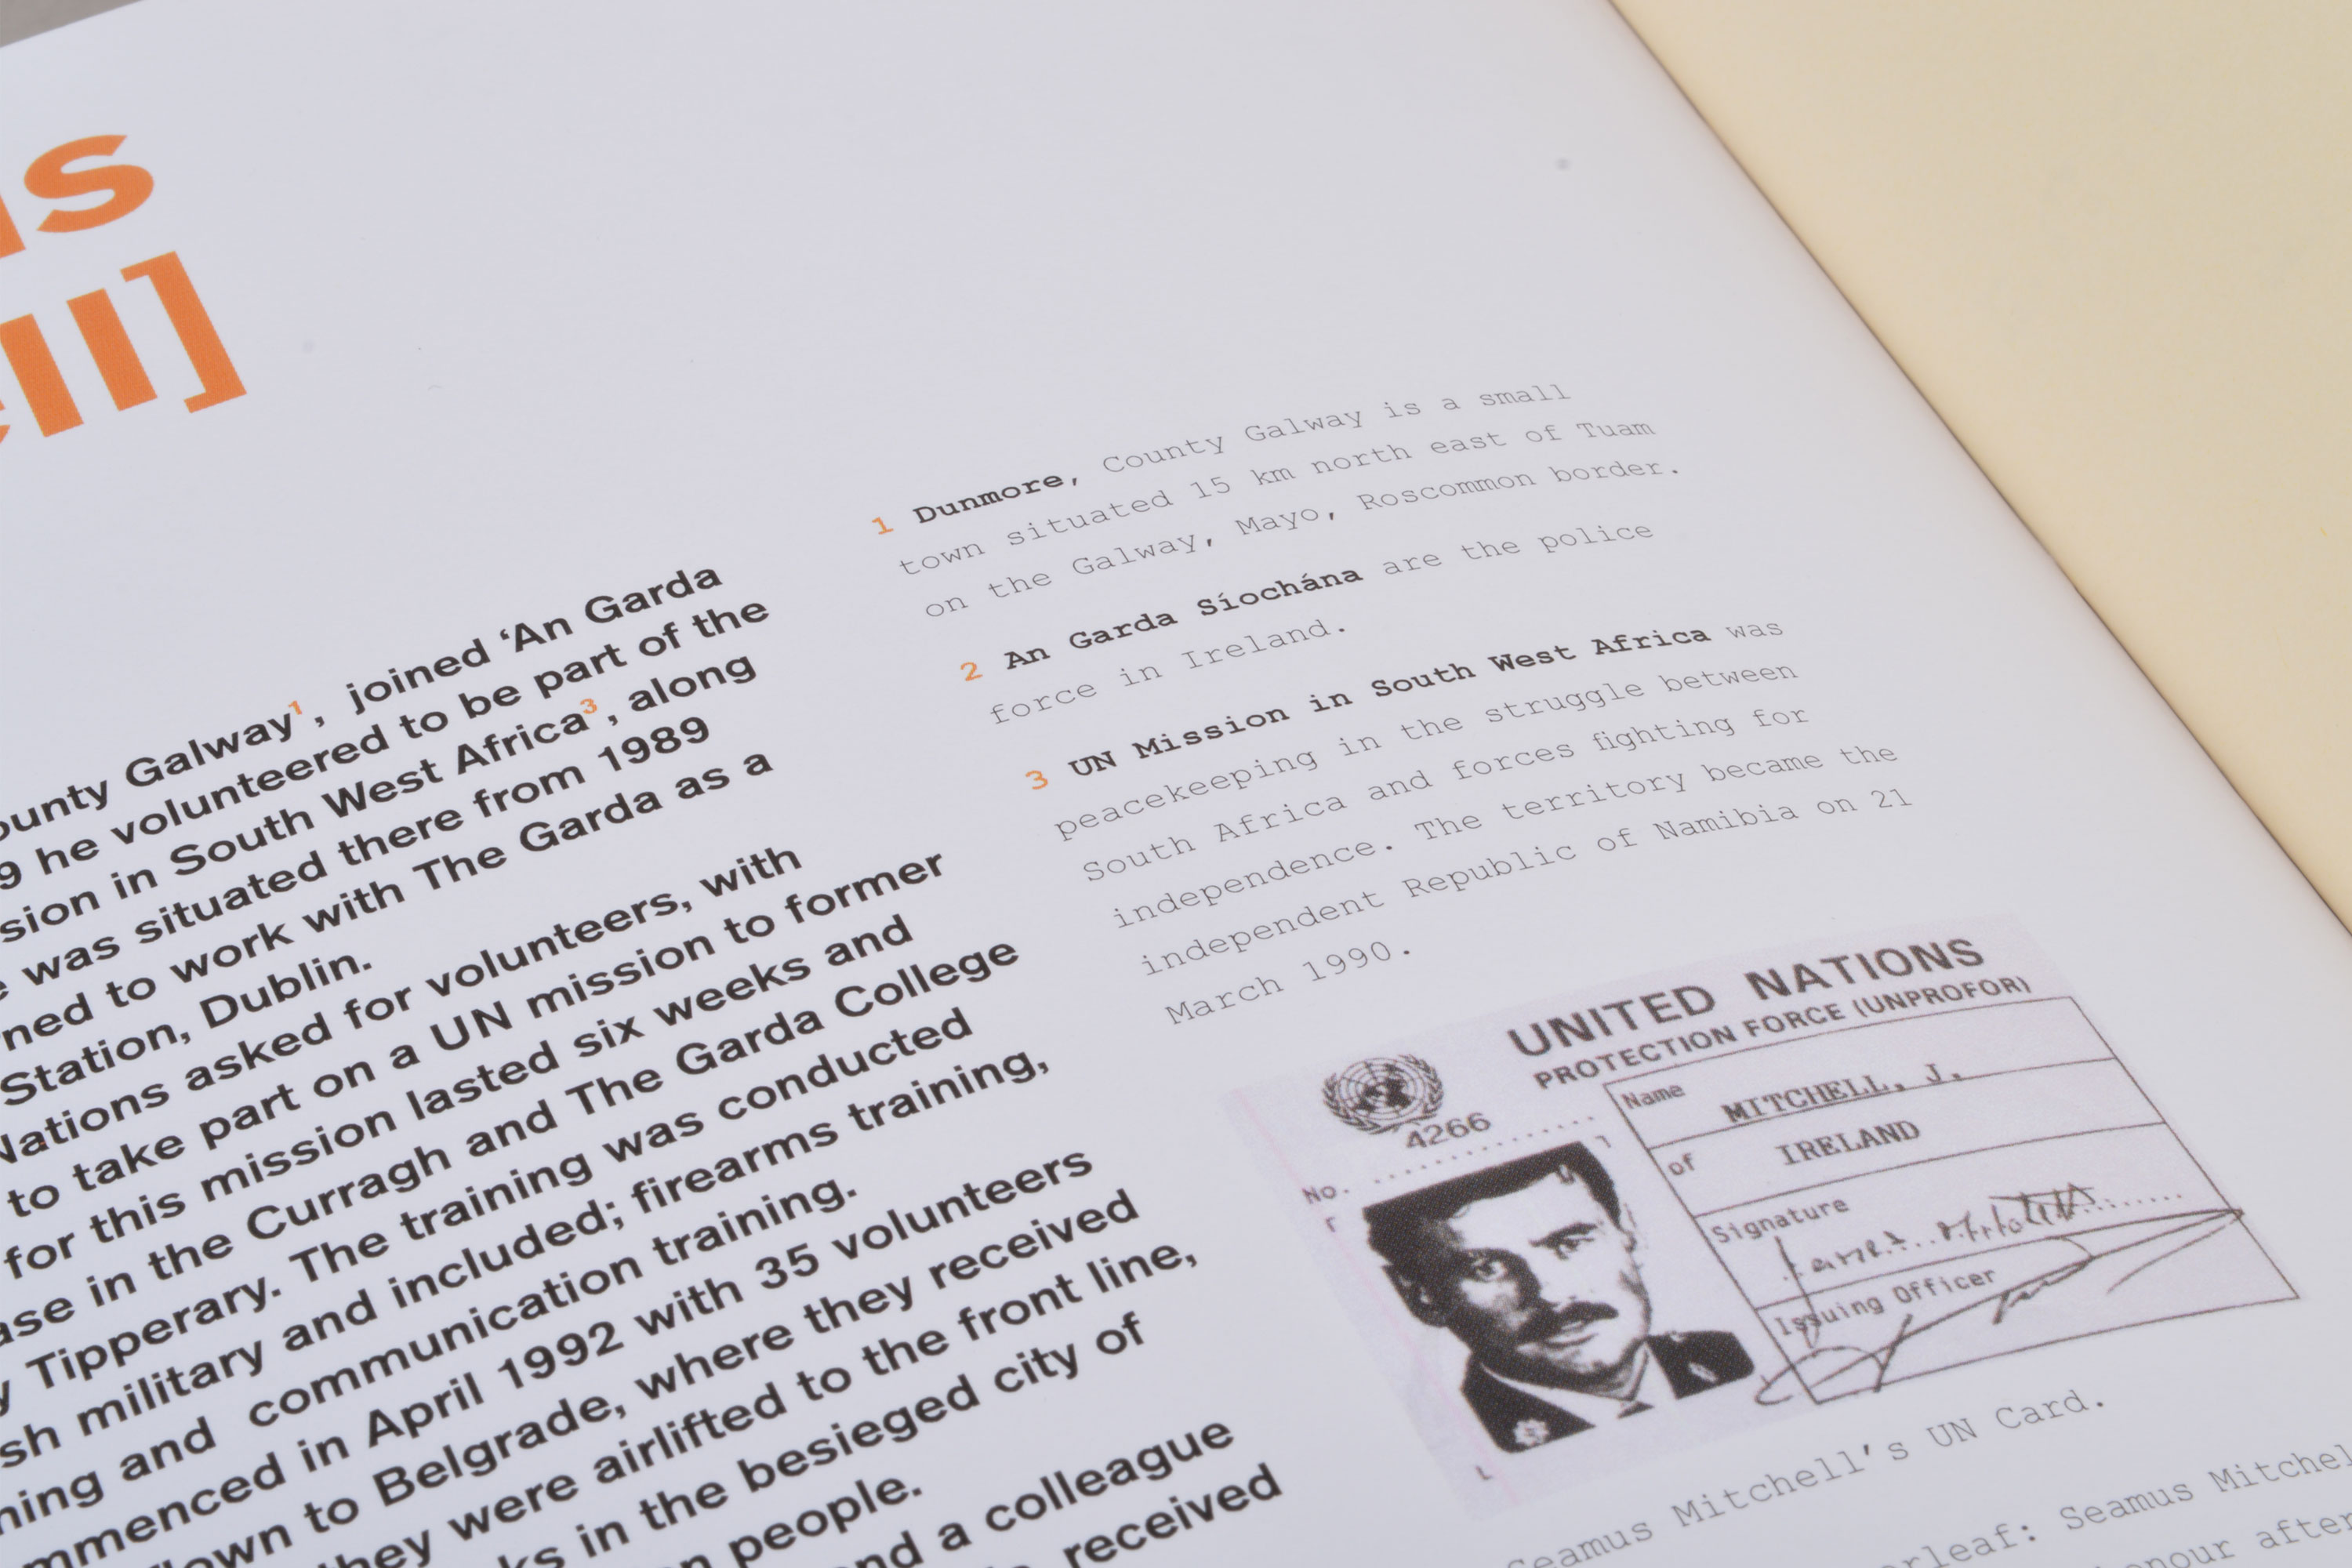 s
ll]
ounty Galway¹, joined ‘An Garda
9 he volunteered to be part of the
sion in South West Africa³, along
was situated there from 1989
ned to work with The Garda as a
Station, Dublin.
Nations asked for volunteers, with
to take part on a UN mission to former
for this mission lasted six weeks and
ase in the Curragh and The Garda College
y Tipperary. The training was conducted
sh military and included; firearms training,
ning and communication training.
mmenced in April 1992 with 35 volunteers
flown to Belgrade, where they received
they were airlifted to the front line,
ks in the besieged city of
n people.
nd a colleague
received
1 Dunmore, County Galway is a small
town situated 15 km north east of Tuam
on the Galway, Mayo, Roscommon border.
2 An Garda Síochána are the police
force in Ireland.
3 UN Mission in South West Africa was
peacekeeping in the struggle between
South Africa and forces fighting for
independence. The territory became the
independent Republic of Namibia on 21
March 1990.
UNITED NATIONS
PROTECTION FORCE (UNPROFOR)
No. 4266
Name MITCHELL, J.
of IRELAND
Signature
Issuing Officer
Seamus Mitchell's UN Card.
erleaf: Seamus Mitchel
onour after